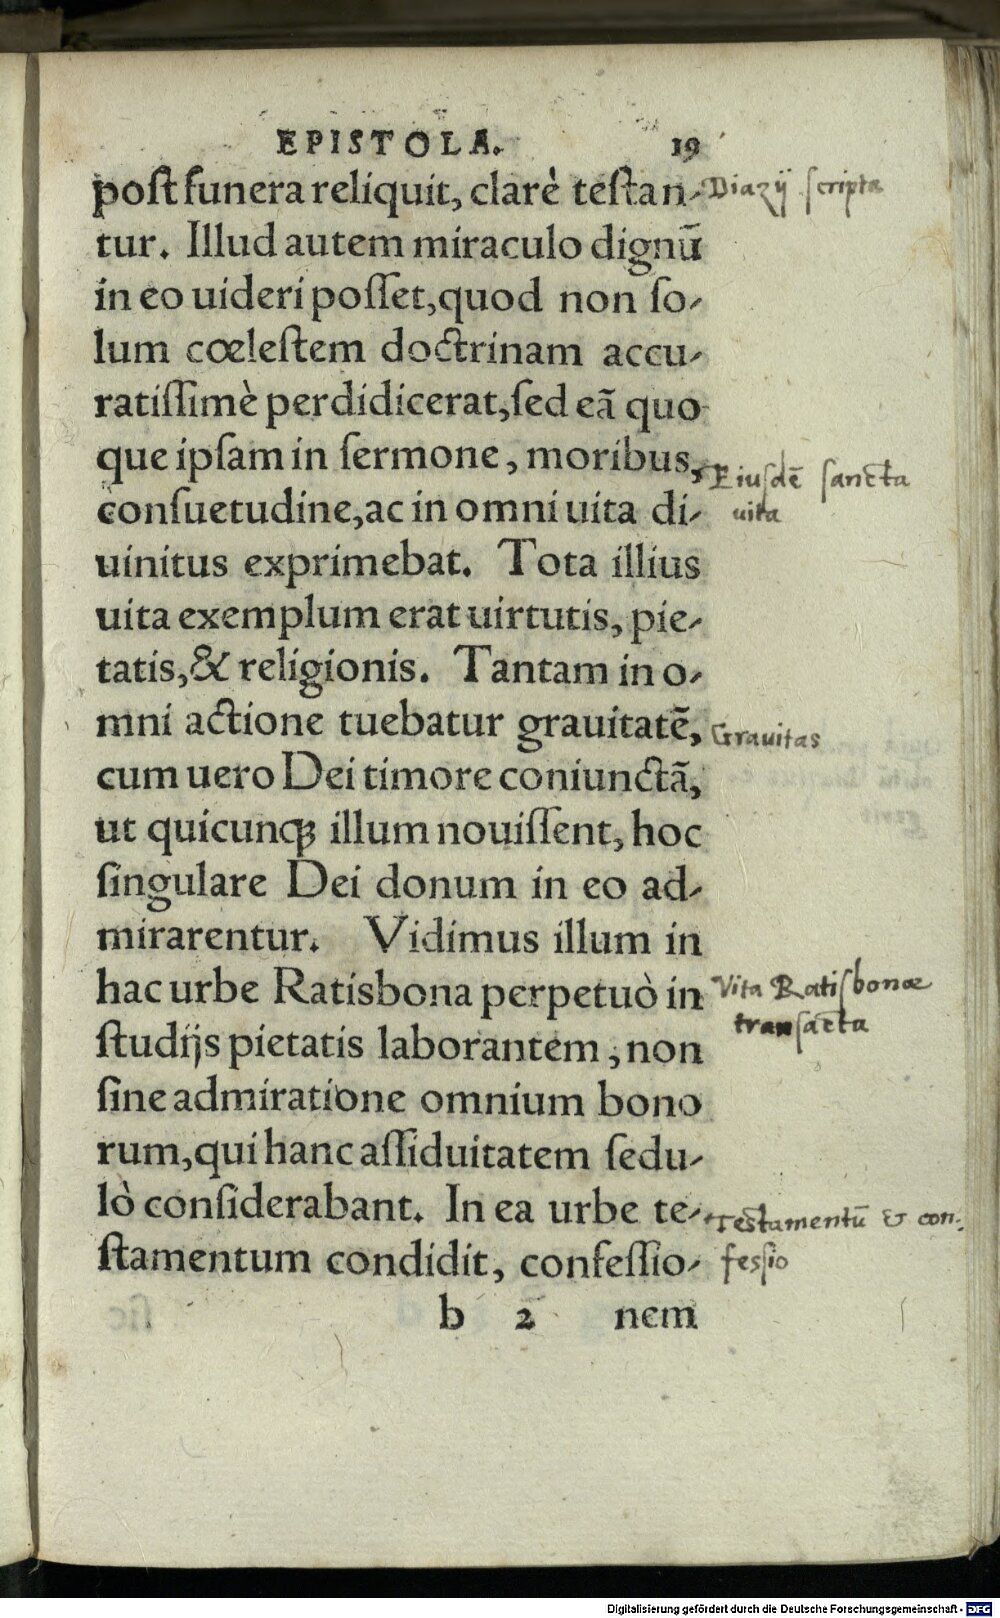 EPISTOLA. 19
post funera reliquit, clarè testan-
tur. Illud autem miraculo dignū
in eo uideri posset, quod non so-
lum cœlestem doctrinam accu-
ratissimè perdidicerat, sed eā quo
que ipsam in sermone, moribus,
consuetudine, ac in omni uita di-
uinitus exprimebat. Tota illius
uita exemplum erat uirtutis, pie-
tatis, & religionis. Tantam in o-
mni actione tuebatur grauitatē,
cum uero Dei timore coniunctā,
ut quicunqꝫ illum nouissent, hoc
singulare Dei donum in eo ad-
mirarentur. Vidimus illum in
hac urbe Ratisbona perpetuò in
studijs pietatis laborantem, non
sine admiratione omnium bono
rum, qui hanc assiduitatem sedu-
lò considerabant. In ea urbe te-
stamentum condidit, confessio-
b 2 nem
Diazij scripta
Eiusdē sancta
uita
Grauitas
Vita Ratisbonæ
transacta
Testamentū & con:
fessio
Digitalisierung gefördert durch die Deutsche Forschungsgemeinschaft - DFG